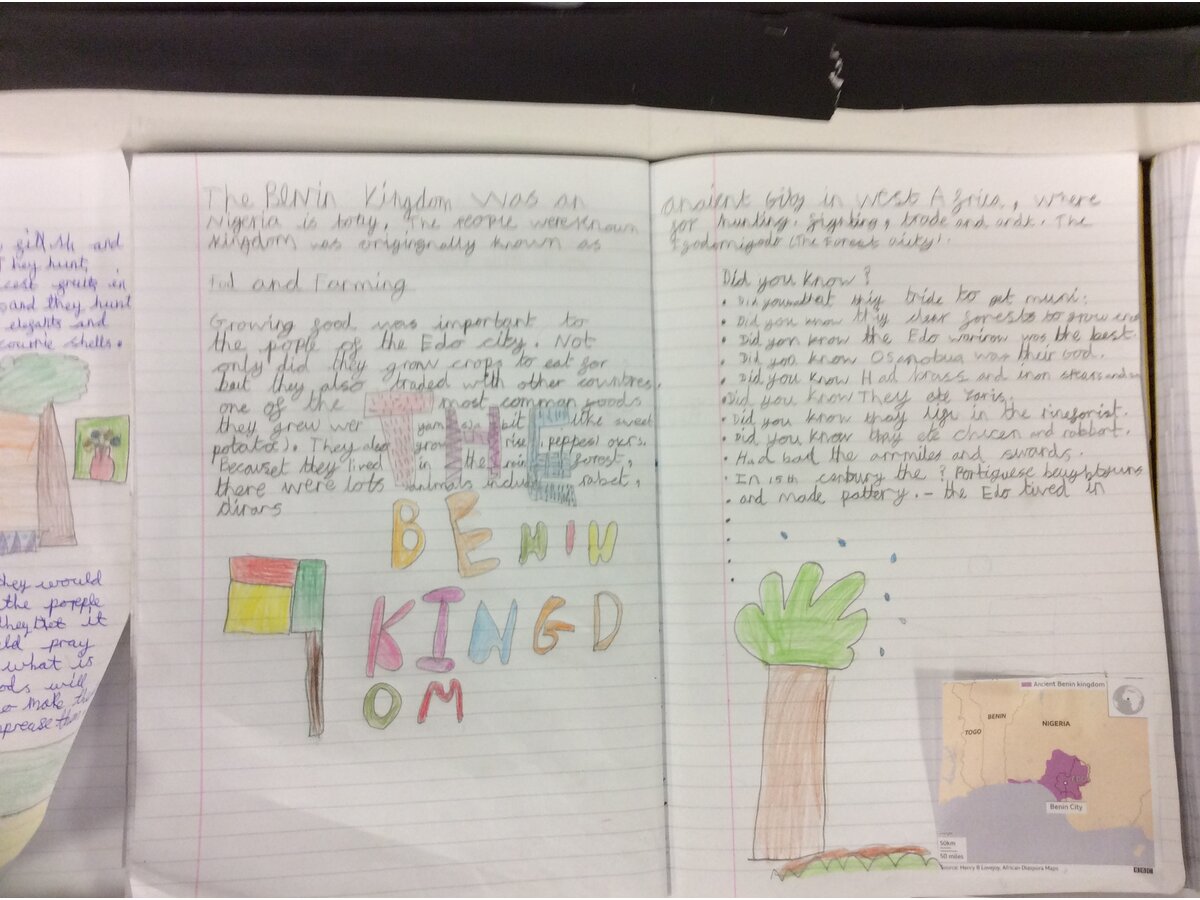 gifts and
They hunt,
in
and they hunt
elegants and
courrie shells.
they would
the porepple
they that it
pray
what is
ods will
make the
The Benin Kingdom was an ancient City in west Africa, where
Nigeria is totay. The people were known for hunting, fighting, trade and ardt. The
Kingdom was origignally known as Igodomigodo (The Forest city).
and Farming
Growing food was important to
the pople of the Edo city. Not
only did they grow crops to eat for
but they also traded with other countres,
one of the most common goods
they grew wer yams (a bit like sweet
potato). They also grow rise, pepper, okrs.
Becauset they lived in the rain forest,
there were lots animals include rabet,
dirars
THE
BENIN
KINGD
OM
Did you know?
• Did you that thiy tride to get muni.
• Did you know thiy clear forests to grow
• Did you know the Edo was the best.
• Did you know Osanobua was their God.
• Did you know Had brass and iron
• Did you know They ate
• Did you know thay life in the rineforist.
• Did you know thiy ate chicen and rabbart.
• Had bad the armiles and swards.
• In 15th century the ? Portiguese
• and made pottery. - the Edo lived in
Ancient Benin kingdom
TOGO
BENIN
NIGERIA
Benin City
50km
50 miles
Source: Henry B Lovejoy, African Diaspora Maps
BBC